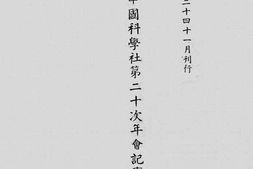 二十四十一月刊行
國科學社第二十次年會記